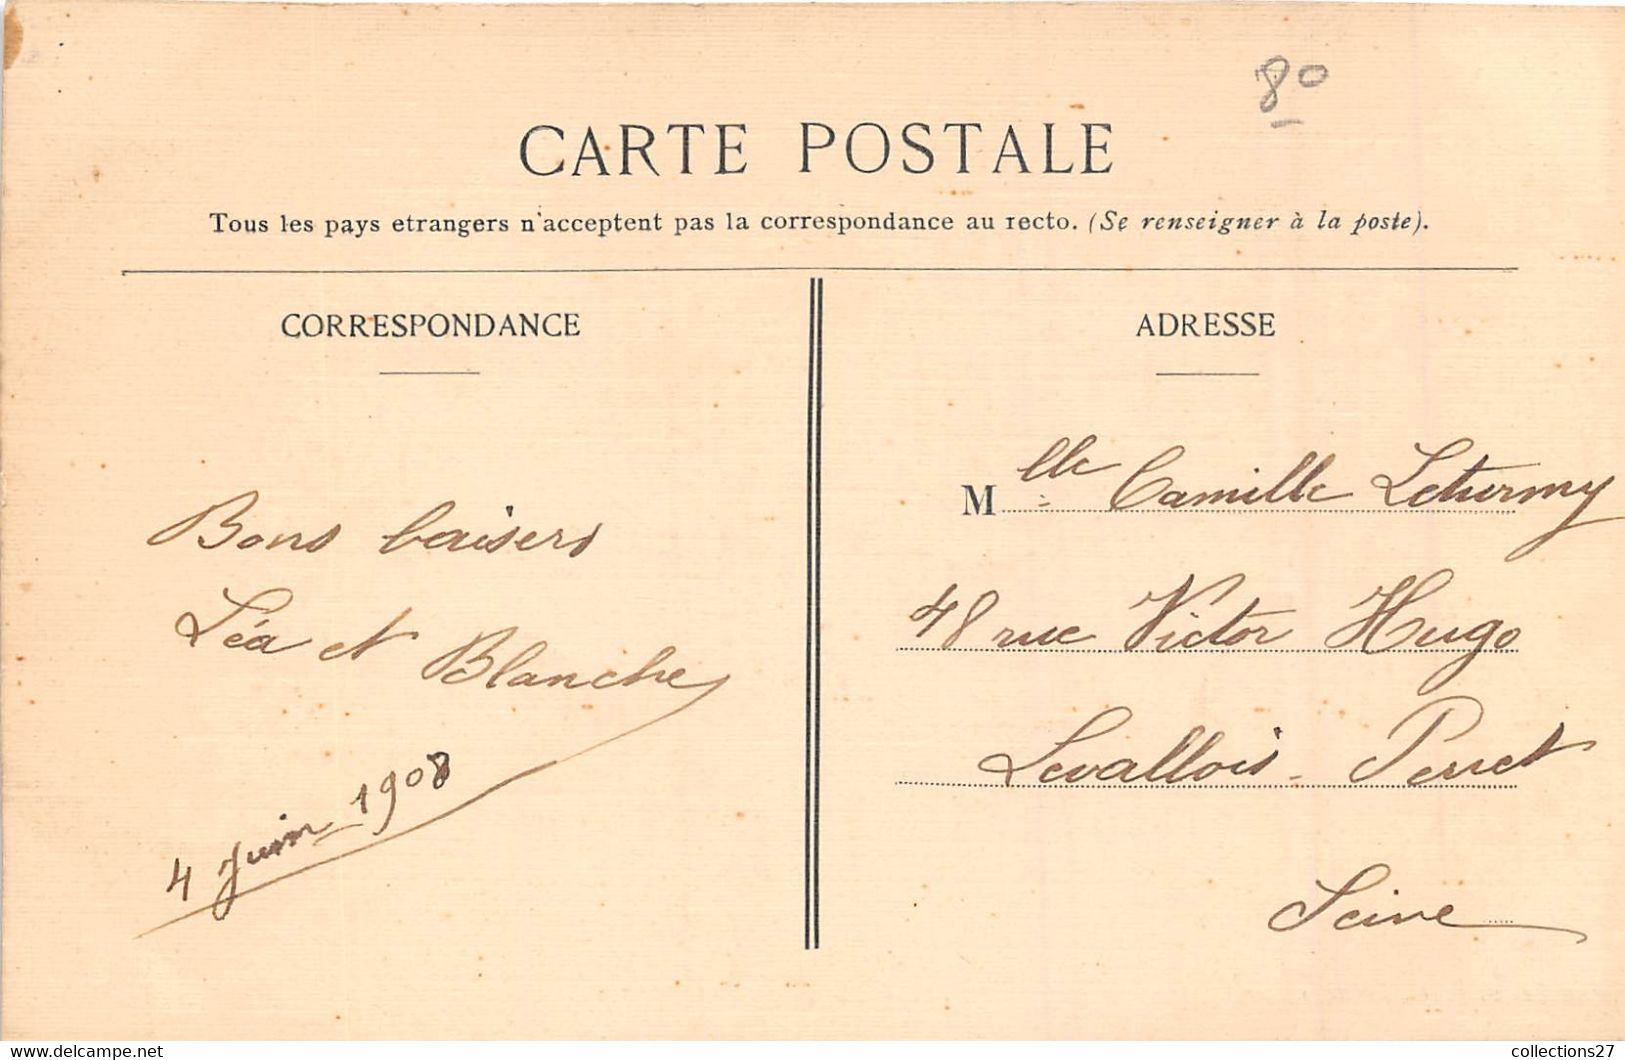 80
CARTE POSTALE
Tous les pays etrangers n'acceptent pas la correspondance au recto. (Se renseigner à la poste).
CORRESPONDANCE
Bons baisers
Léa et Blanche
4 Juin 1908
ADRESSE
Mlle Camille Leturmy
48 rue Victor Hugo
Levallois-Perret
Seine
www.delcampe.net
collections27